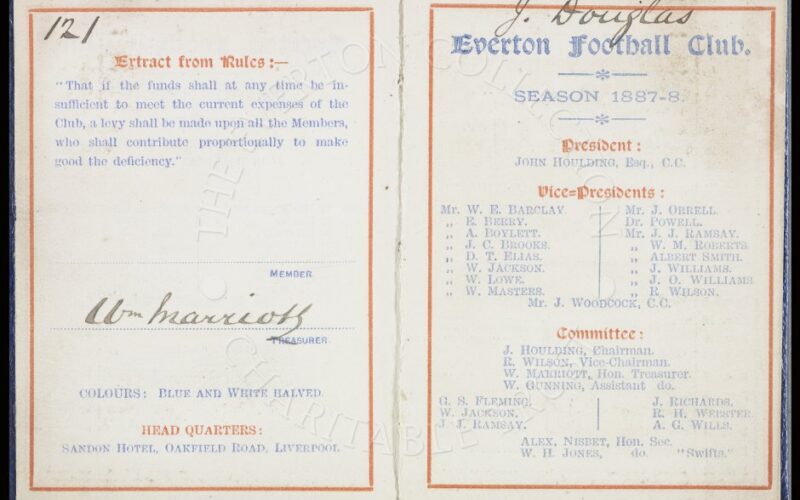 121
Extract from Rules :—
"That if the funds shall at any time be in-
sufficient to meet the current expenses of the
Club, a levy shall be made upon all the Members,
who shall contribute proportionally to make
good the deficiency."
MEMBER
Wm Marriott
TREASURER
COLOURS: BLUE AND WHITE HALVED.
HEAD QUARTERS:
SANDON HOTEL, OAKFIELD ROAD, LIVERPOOL.
J. Douglas
Everton Football Club.
SEASON 1887-8.
President :
JOHN HOULDING, Esq., C.C.
Vice=Presidents :
Mr. W. E. BARCLAY.
„ E. BERRY.
„ A. BOYLETT.
„ J. C. BROOKS.
„ D. T. ELIAS.
„ W. JACKSON.
„ W. LOWE.
„ W. MASTERS.
Mr. J. ORRELL.
Dr. POWELL.
Mr. J. J. RAMSAY.
„ W. M. ROBERTS.
„ ALBERT SMITH.
„ J. WILLIAMS.
„ J. O. WILLIAMS
„ R. WILSON.
Mr. J. WOODCOCK, C.C.
Committee :
J. HOULDING, Chairman.
R. WILSON, Vice-Chairman.
W. MARRIOTT, Hon. Treasurer.
W. GUNNING, Assistant do.
G. S. FLEMING.
W. JACKSON.
J. J. RAMSAY.
J. RICHARDS.
R. H. WEBSTER.
A. G. WILLS.
ALEX. NISBET, Hon. Sec.
W. H. JONES, do. "Swifts."
THE EVERTON COLLECTION
CHARITABLE TRUST